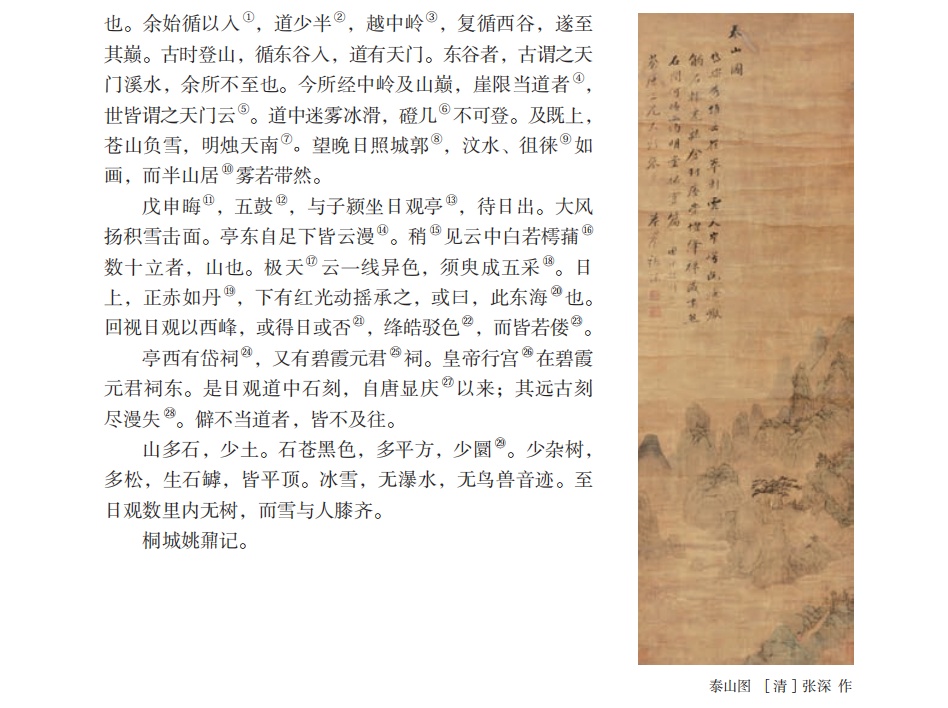 也。余始循以入①，道少半②，越中岭③，复循西谷，遂至
其巅。古时登山，循东谷入，道有天门。东谷者，古谓之天
门溪水，余所不至也。今所经中岭及山巅，崖限当道者④，
世皆谓之天门云⑤。道中迷雾冰滑，磴几⑥不可登。及既上，
苍山负雪，明烛天南⑦。望晚日照城郭⑧，汶水、徂徕⑨如
画，而半山居⑩雾若带然。
戊申晦⑪，五鼓⑫，与子颍坐日观亭⑬，待日出。大风
扬积雪击面。亭东自足下皆云漫⑭。稍⑮见云中白若樗蒲⑯
数十立者，山也。极天⑰云一线异色，须臾成五采⑱。日
上，正赤如丹⑲，下有红光动摇承之，或曰，此东海⑳也。
回视日观以西峰，或得日或否㉑，绛皓驳色㉒，而皆若偻㉓。
亭西有岱祠㉔，又有碧霞元君㉕祠。皇帝行宫㉖在碧霞
元君祠东。是日观道中石刻，自唐显庆㉗以来；其远古刻
尽漫失㉘。僻不当道者，皆不及往。
山多石，少土。石苍黑色，多平方，少圜㉙。少杂树，
多松，生石罅，皆平顶。冰雪，无瀑水，无鸟兽音迹。至
日观数里内无树，而雪与人膝齐。
桐城姚鼐记。
泰山图
泰山图 ［清］张深 作